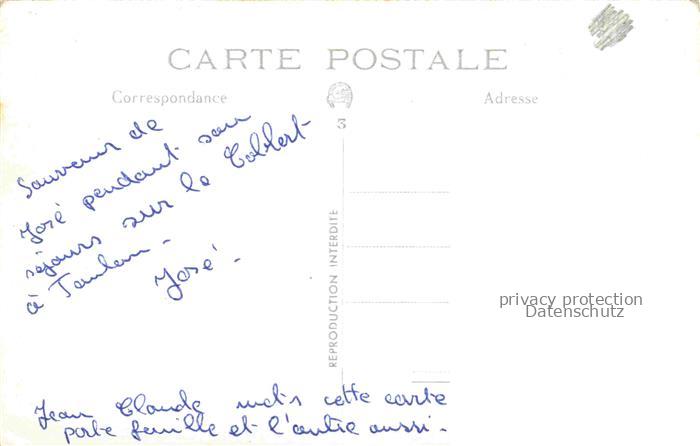 CARTE POSTALE
Correspondance
Adresse
3
Souvenir de
José pendant son
séjours sur le Colbert
à Toulon -
José -
REPRODUCTION INTERDITE
privacy protection
Datenschutz
Jean Claude mets cette carte
porte feuille et l'autre aussi -